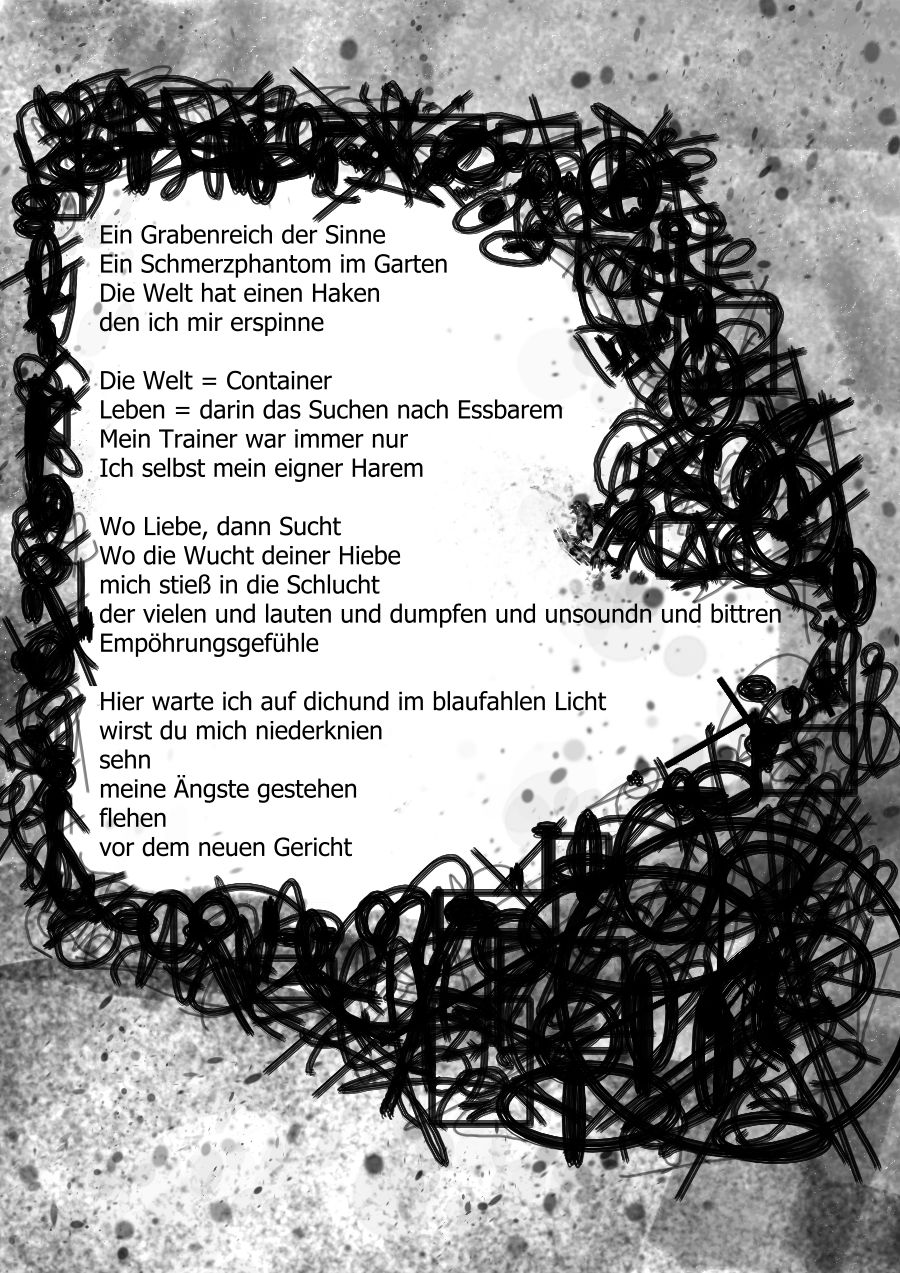 Ein Grabenreich der Sinne
Ein Schmerzphantom im Garten
Die Welt hat einen Haken
den ich mir erspinne
Die Welt = Container
Leben = darin das Suchen nach Essbarem
Mein Trainer war immer nur
Ich selbst mein eigner Harem
Wo Liebe, dann Sucht
Wo die Wucht deiner Hiebe
mich stieß in die Schlucht
der vielen und lauten und dumpfen und unsoundn und bittren
Empöhrungsgefühle
Hier warte ich auf dichund im blaufahlen Licht
wirst du mich niederknien
sehn
meine Ängste gestehen
flehen
vor dem neuen Gericht